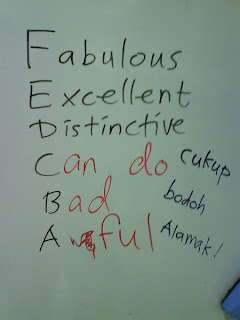 Fabulous
Excellent
Distinctive
Can do cukup
Bad bodoh
Awful Alamak!